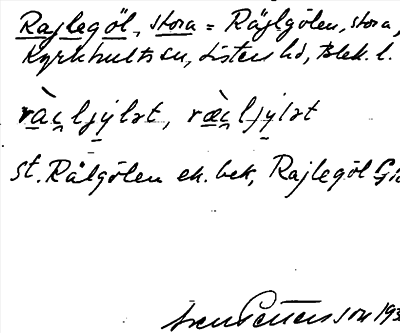 Rajlegöl, stora = Räjlgölen, stora,
Kyrkhults sn, Listers hd, Blek. l.
ràı̨ ljýlət, ræ̀ı̨ ljýlət
st. Rälgölen ek. bek, Rajlegöl
Petterson 193